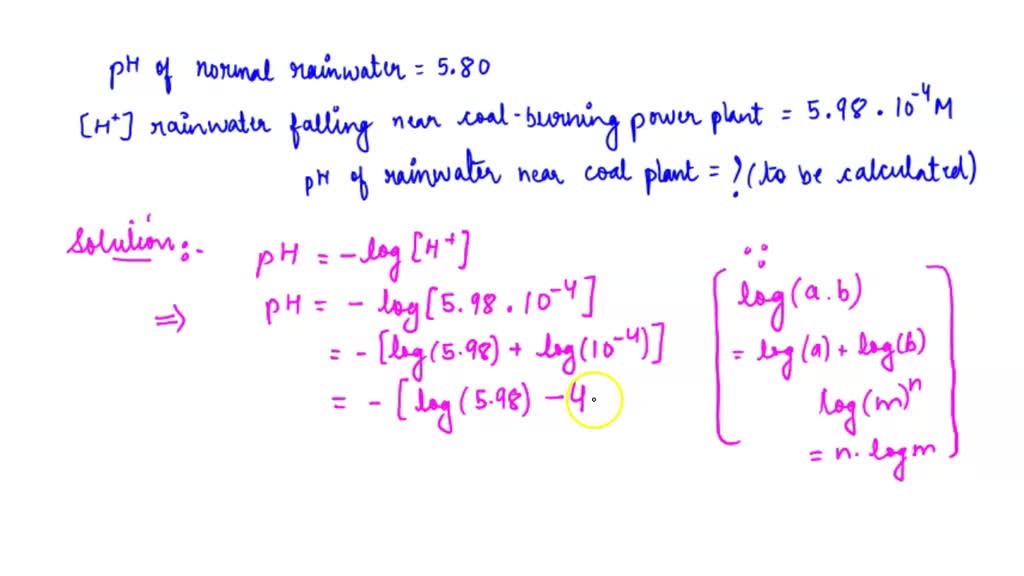 pH of normal rainwater = 5.80
[H⁺] rainwater falling near coal-burning power plant = 5.98 . 10⁻⁴ M
pH of rainwater near coal plant = ? (to be calculated)
Solution:-
pH = -log [H⁺]
⇒ pH = - log [5.98 . 10⁻⁴]
= - [log (5.98) + log (10⁻⁴)]
= - [log (5.98) - 4.
∵
log (a.b)
= log (a) + log (b)
log (m)ⁿ
= n. log m